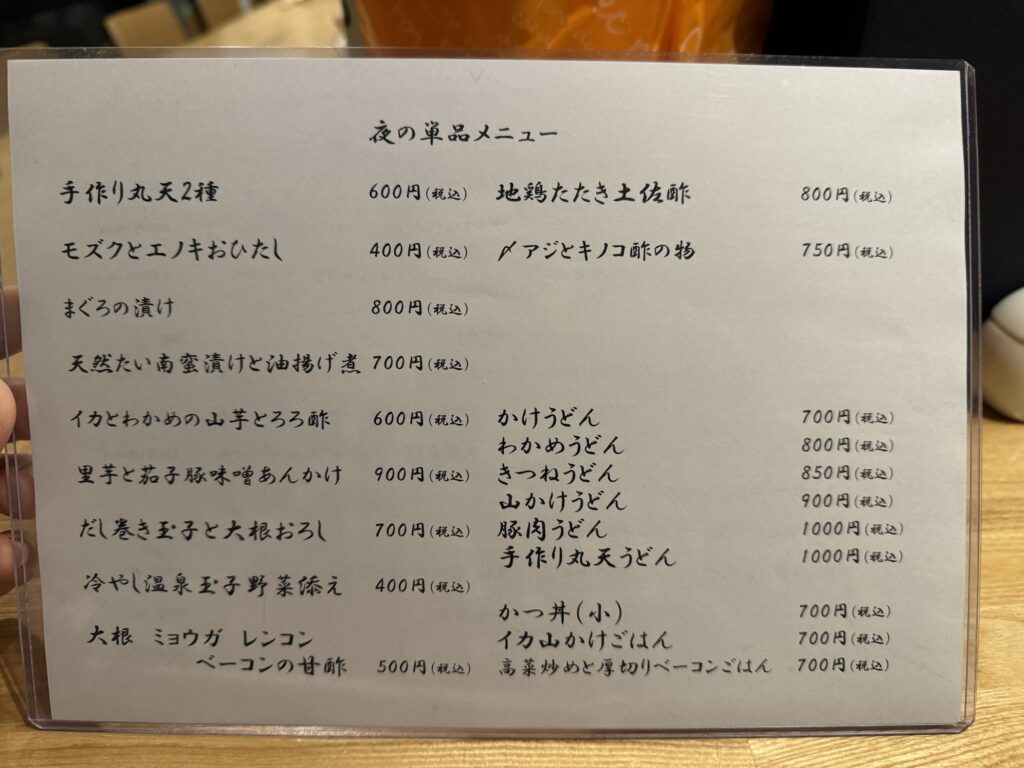 夜の単品メニュー
手作り丸天2種 600円(税込)
モズクとエノキおひたし 400円(税込)
まぐろの漬け 800円(税込)
天然たい南蛮漬けと油揚げ煮 700円(税込)
イカとわかめの山芋とろろ酢 600円(税込)
里芋と茄子豚味噌あんかけ 900円(税込)
だし巻き玉子と大根おろし 700円(税込)
冷やし温泉玉子野菜添え 400円(税込)
大根 ミョウガ レンコン
ベーコンの甘酢 500円(税込)
地鶏たたき土佐酢 800円(税込)
〆アジとキノコ酢の物 750円(税込)
かけうどん 700円(税込)
わかめうどん 800円(税込)
きつねうどん 850円(税込)
山かけうどん 900円(税込)
豚肉うどん 1000円(税込)
手作り丸天うどん 1000円(税込)
かつ丼(小) 700円(税込)
イカ山かけごはん 700円(税込)
高菜炒めと厚切りベーコンごはん 700円(税込)